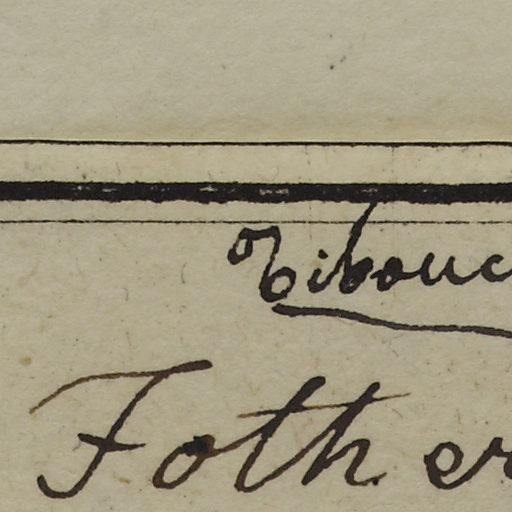 Tibouc
Fother